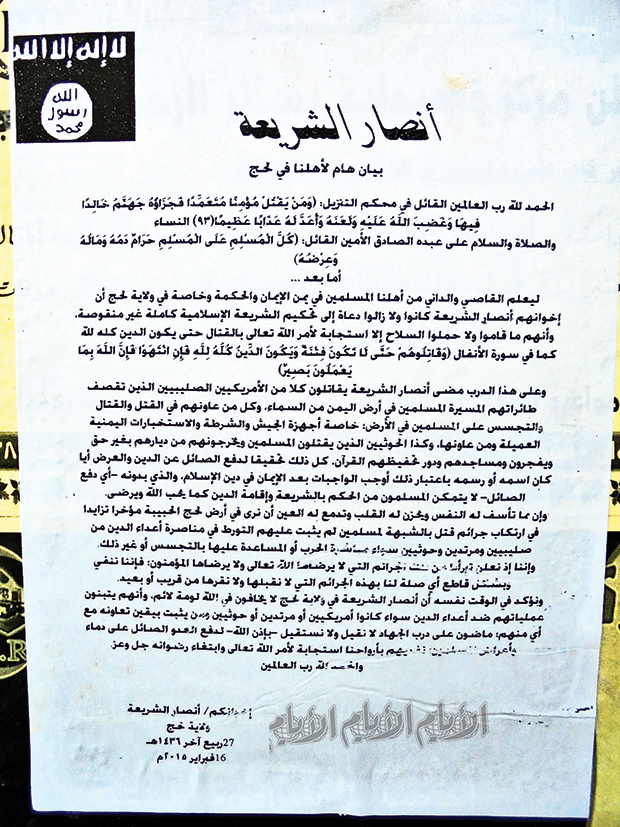 لا إله إلا الله
الله
رسول
محمد
أنصار الشريعة
بيان هام لأهلنا في لحج
الحمد لله رب العالمين القائل في محكم التنزيل: (وَمَنْ يَقْتُلْ مُؤْمِنًا مُتَعَمِّدًا فَجَزَاؤُهُ جَهَنَّمُ خَالِدًا
فِيهَا وَغَضِبَ اللَّهُ عَلَيْهِ وَلَعَنَهُ وَأَعَدَّ لَهُ عَذَابًا عَظِيمًا(٩٣) النساء
والصلاة والسلام على عبده الصادق الأمين القائل: (كُلُّ الْمُسْلِمِ عَلَى الْمُسْلِمِ حَرَامٌ دَمُهُ وَمَالُهُ
وَعِرْضُهُ)
أما بعد ...
ليعلم القاصي والداني من أهلنا المسلمين في يمن الإيمان والحكمة وخاصة في ولاية لحج أن
إخوانهم أنصار الشريعة كانوا ولا زالوا دعاة إلى تحكيم الشريعة الإسلامية كاملة غير منقوصة،
وأنهم ما قاموا ولا حملوا السلاح إلا استجابة لأمر الله تعالى بالقتال حتى يكون الدين كله لله
كما في سورة الأنفال (وَقَاتِلُوهُمْ حَتَّى لَا تَكُونَ فِتْنَةٌ وَيَكُونَ الدِّينُ كُلُّهُ لِلَّهِ فَإِنِ انْتَهَوْا فَإِنَّ اللَّهَ بِمَا
يَعْمَلُونَ بَصِيرٌ)
وعلى هذا الدرب مضى أنصار الشريعة يقاتلون كلا من الأمريكيين الصليبيين الذين تقصف
طائراتهم المسيرة المسلمين في أرض اليمن من السماء، وكل من عاونهم في القتل والقتال
والتجسس على المسلمين في الأرض: خاصة أجهزة الجيش والشرطة والاستخبارات اليمنية
العميلة ومن عاونها، وكذا الحوثيين الذين يقتلون المسلمين ويخرجونهم من ديارهم بغير حق
ويفجرون ومساجدهم ودور تحفيظهم القرآن. كل ذلك تحقيقا لدفع الصائل عن الدين والعرض أيا
كان اسمه أو رسمه باعتبار ذلك أوجب الواجبات بعد الإيمان في دين الإسلام، والذي بدونه –أي دفع
الصائل– لا يتمكن المسلمون من الحكم بالشريعة وإقامة الدين كما يحب الله ويرضى.
وإن مما تأسف له النفس ويحزن له القلب وتدمع له العين أن نرى في أرض لحج الحبيبة مؤخرا تزايدا
في ارتكاب جرائم قتل بالشبهة لمسلمين لم يثبت عليهم التورط في مناصرة أعداء الدين من
صليبيين ومرتدين وحوثيين سواء مباشرة الحرب أو المساعدة عليها بالتجسس أو غير ذلك
وإننا إذ نعلن تبرأنا من تلك الجرائم التي لا يرضاها الله تعالى ولا يرضاها المؤمنون: فإننا ننفي
وبشكل قاطع أي صلة لنا بهذه الجرائم التي لا نقبلها ولا نقرها من قريب أو بعيد.
ونؤكد في الوقت نفسه أن أنصار الشريعة في ولاية لحج لا يخافون في الله لومة لائم، وأنهم يتبنون
عملياتهم ضد أعداء الدين سواء كانوا أمريكيين أو مرتدين أو حوثيين ومن يثبت بيقين تعاونه مع
أي منهم: ماضون على درب الجهاد لا نقيل ولا نستقيل –بإذن الله– لدفع العدو الصائل على دماء
وأعراض المسلمين نفديهم بأرواحنا استجابة لأمر الله تعالى وابتغاء رضوانه جل وعز.
والحمد لله رب العالمين
إخوانكم/ أنصار الشريعة
ولاية لحج
27ربيع آخر ١٤٣٦هـ
16فبراير ٢٠١٥م
الأيام الأيام الأيام